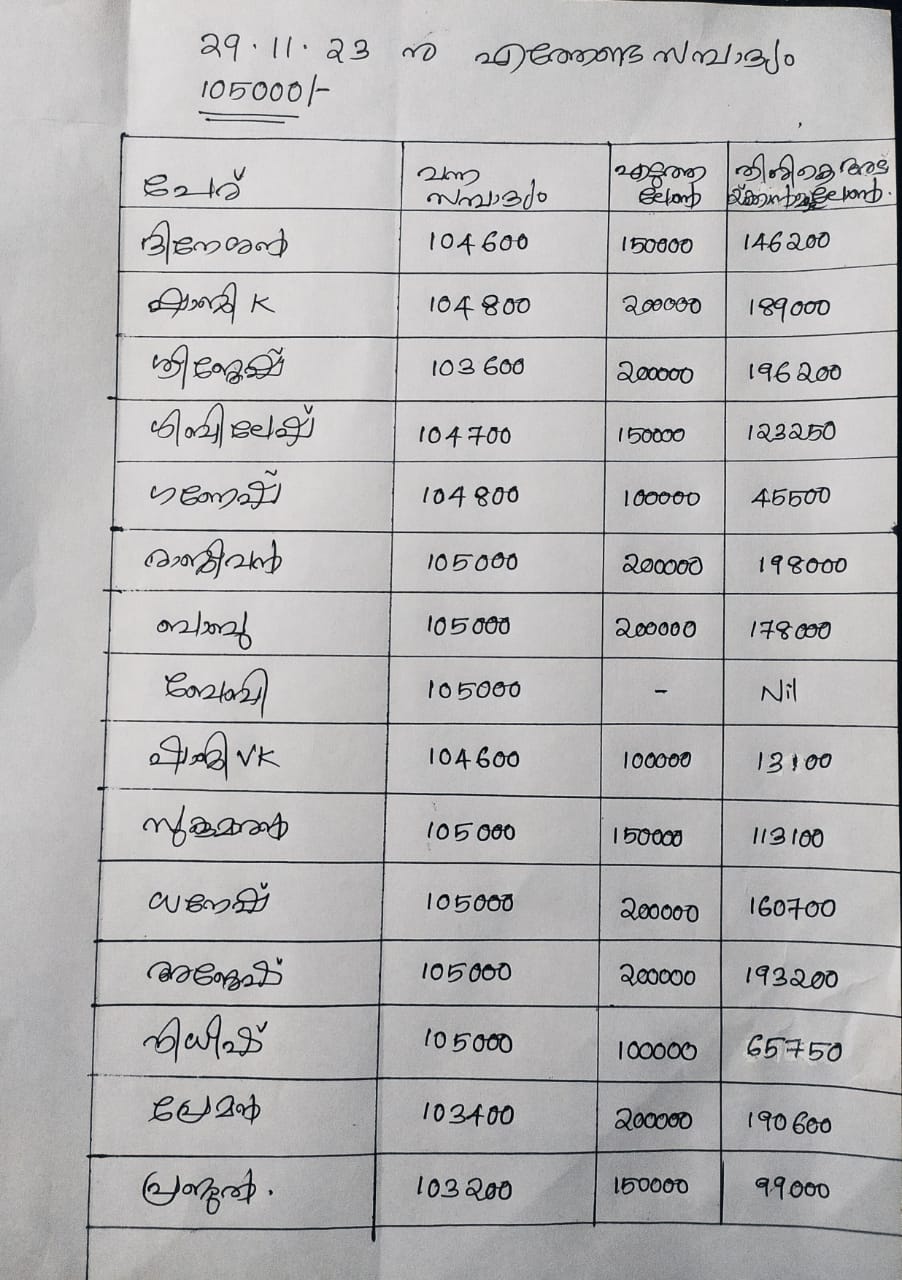 29.11.23 ന് എത്തേണ്ട സമ്പാദ്യം
105000/-
പേര് വന്ന സമ്പാദ്യം എടുത്ത ലോൺ തിരികെ അടയ്ക്കാനുള്ള ലോൺ.
ദിനേശൻ 104600 150000 146200
ഷാജി K 104800 200000 189000
ശ്രീജേഷ് 103600 200000 196200
ശിബിലേഷ് 104700 150000 123250
ഗണേഷ് 104800 100000 45500
രാജീവൻ 105000 200000 198000
ബാബു 105000 200000 178000
ബേബി 105000 - Nil
ഷാജി VK 104600 100000 13100
സുകുമാരൻ 105000 150000 113100
ധനേഷ് 105000 200000 160700
അജേഷ് 105000 200000 193200
നിധീഷ് 105000 100000 65750
പ്രേമൻ 103400 200000 190600
103200 150000 99000